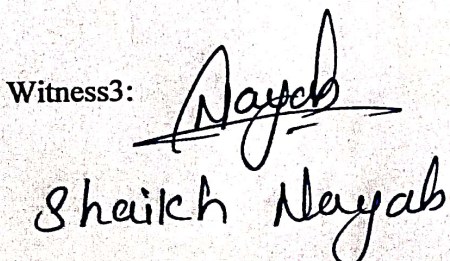 Witness3: Nayab
Shaikh Nayab